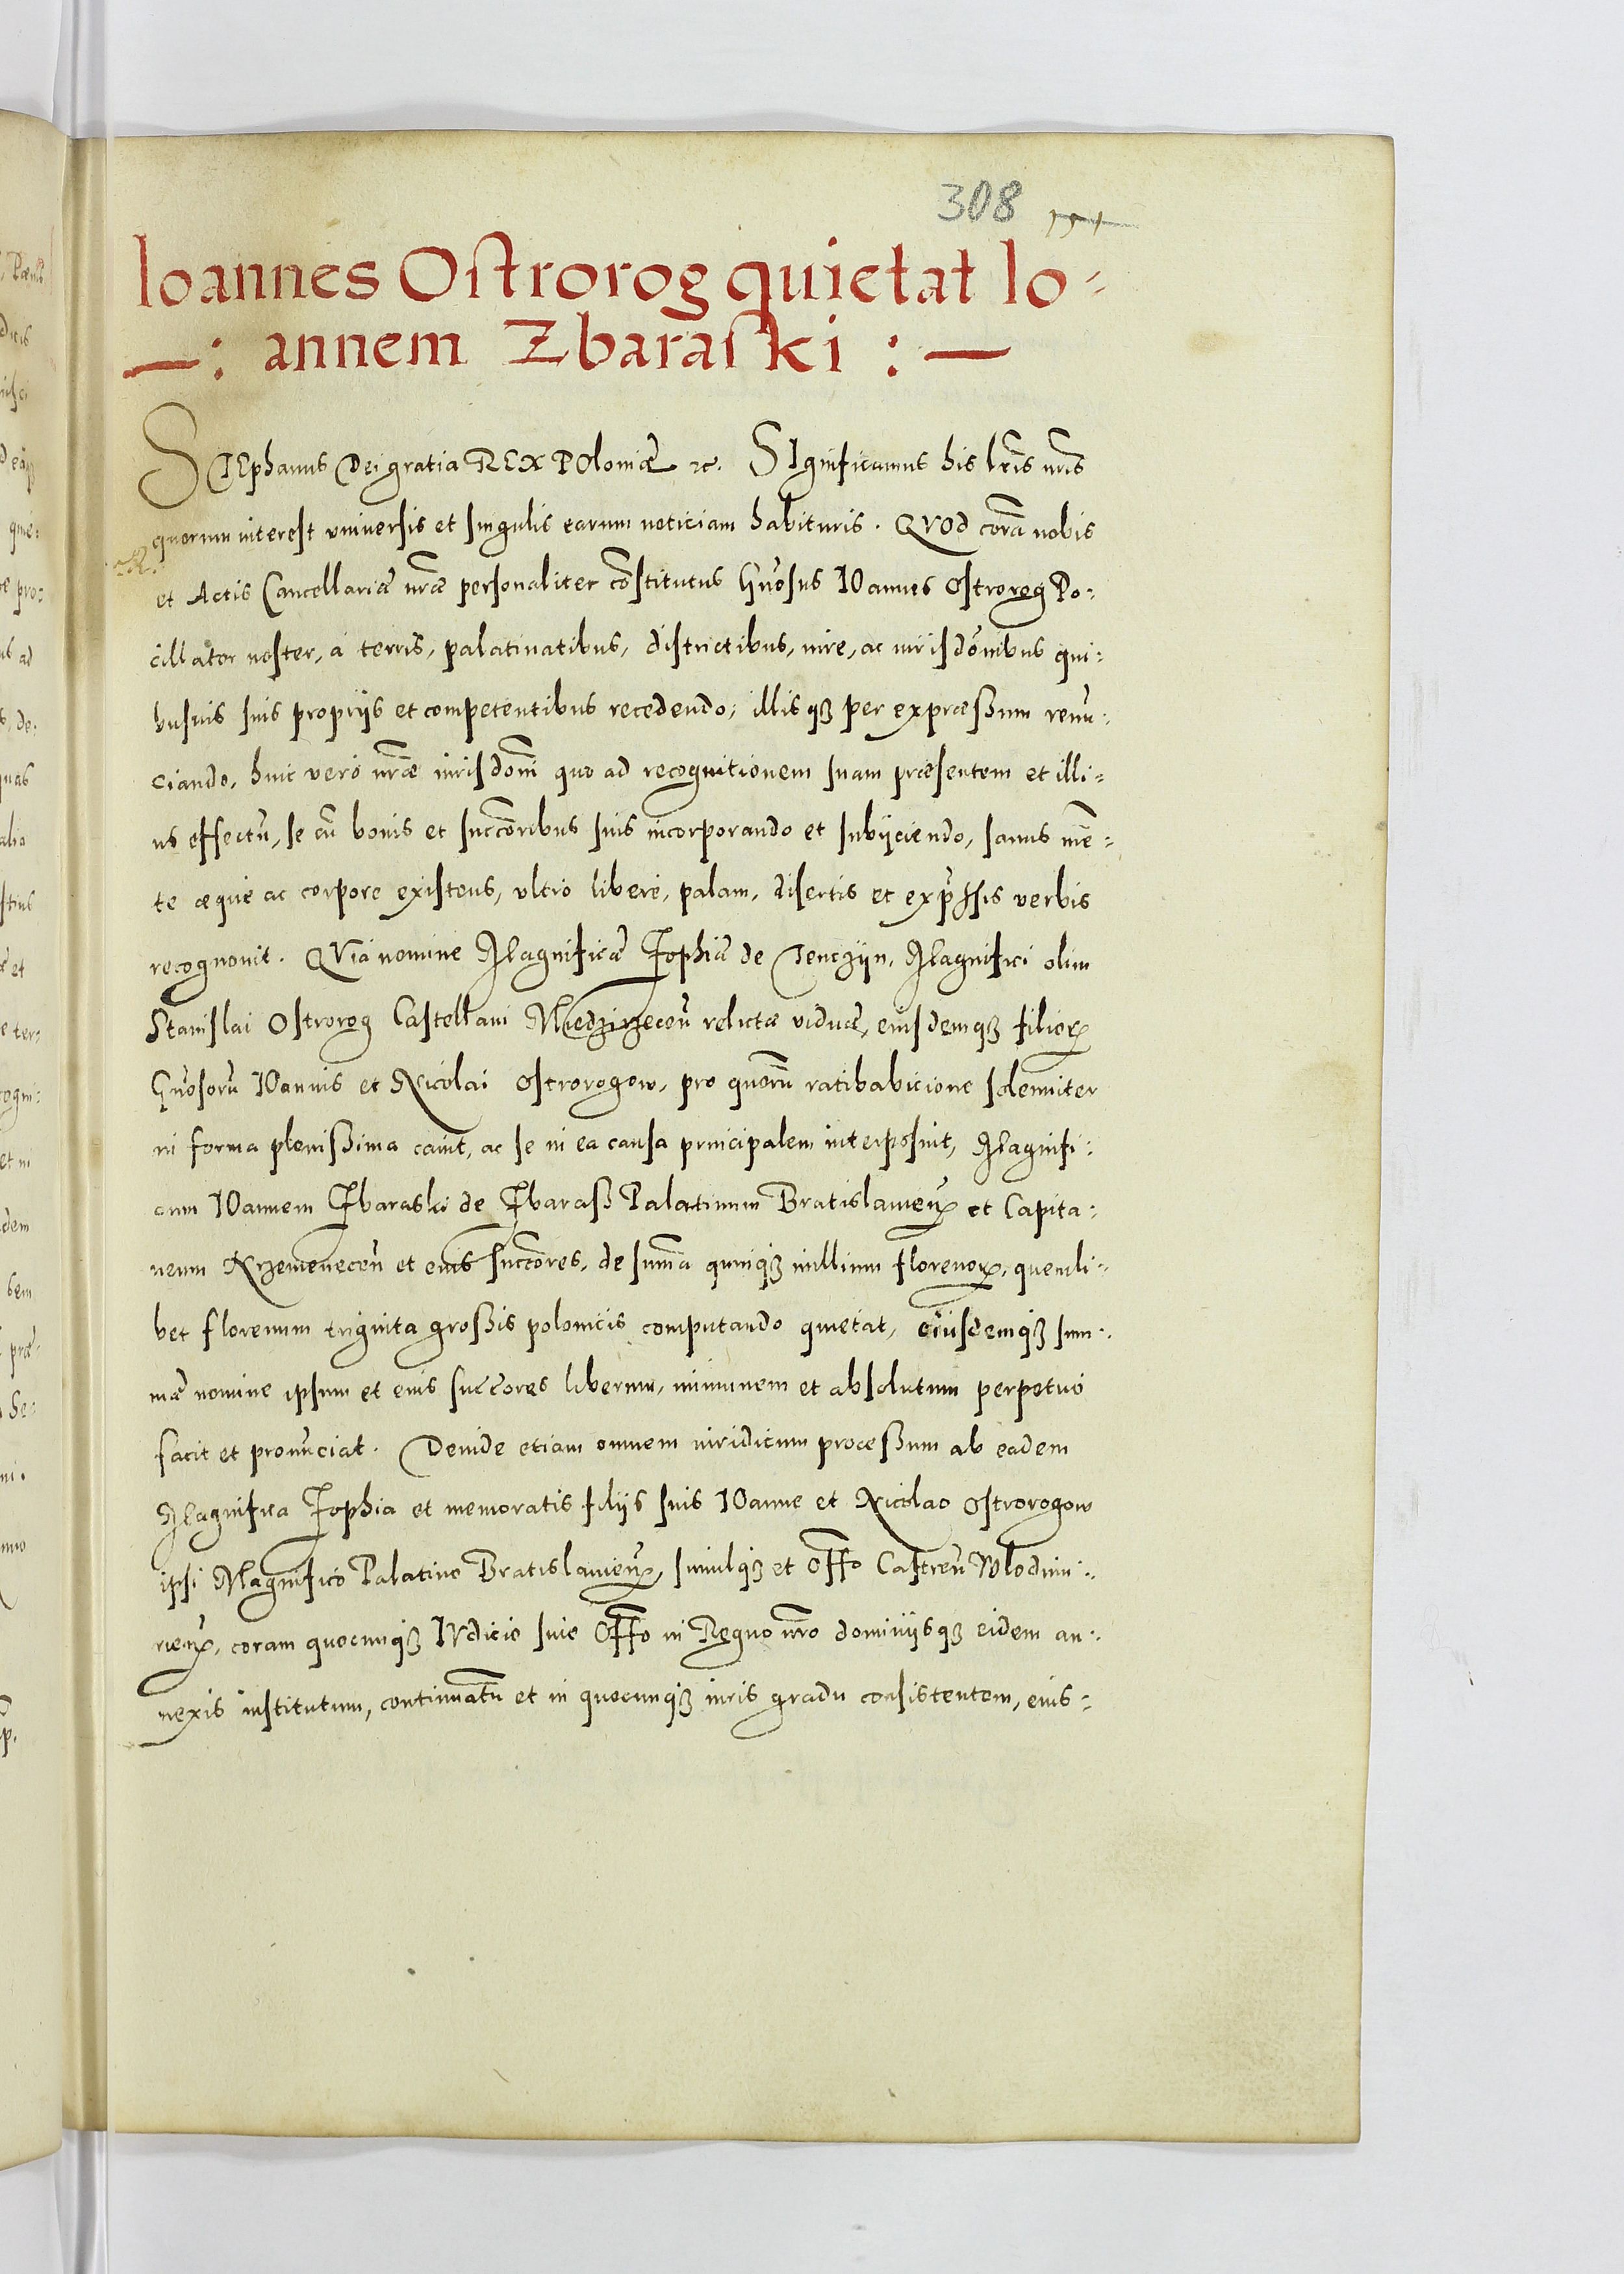 308
Ioannes Ostrorog quietat Io-
—: annem Zbaraski :—
STEphanus Dei gratia REX POloniæ etc. SIgnificamus his lr̃is nr̃is
quorum interest vniuersis et singulis earum noticiam habituris. QVOd corã nobis
et Actis Cancellariæ nr̃æ personaliter cõstitutus Gñosus IOannes Ostrorog Po-
cillator noster, à terris, palatinatibus, districtibus, iure, ac iurisdõnibus qui-
busuis suis proprijs et competentibus recedendo, illisq; per expræssum renũ-
ciando, huic verò nr̃æ iurisdõni quo ad recognitionem suam præsentem et illi-
us effectũ, se cũ bonis et succõribus suis incorporando et subijciendo, sanus mẽ-
te æque ac corpore existens, vltrò liberè, palam, disertis et exp̃ssis verbis
recognouit. QVia nomine Magnificæ Zophiæ de Tenczijn, Magnifici olim
Stanislai Ostrorog Castellani Miedzirzeceñ relictæ viduæ, eiusdemq; filiorꝝ
Gñosorũ IOannis et Nicolai Ostrorogow, pro quorũ ratihabicione solemniter
in forma plenissima cauit, ac se in ea causa principalem interposuit, Magnifi-
cum IOannem Zbaraski de Zbaraß Palatinum Bratislauieñ et Capita-
neum Krzemeneceñ et eius succõres, de sum̃a quinq; millium florenorꝝ, quemli-
bet florenum triginta grossis polonicis computando quietat, eiusdemq; sum-
mæ nomine ipsum et eius succõres liberum, immunem et absolutum perpetuò
facit et pronũciat. Deinde etiam omnem iuridicum processum ab eadem
Magnifica Zophia et memoratis filijs suis IOanne et Nicolao Ostrorogow
ipsi Magnifico Palatino Bratislauieñ, simulq; et Offo Castreñ Wlodimi-
rieñ, coram quocunq; IVdicio siue Offo in Regno nr̃o dominijsq; eidem an-
nexis institutum, continuatũ et in quocunq; iuris gradu consistentem, eius-